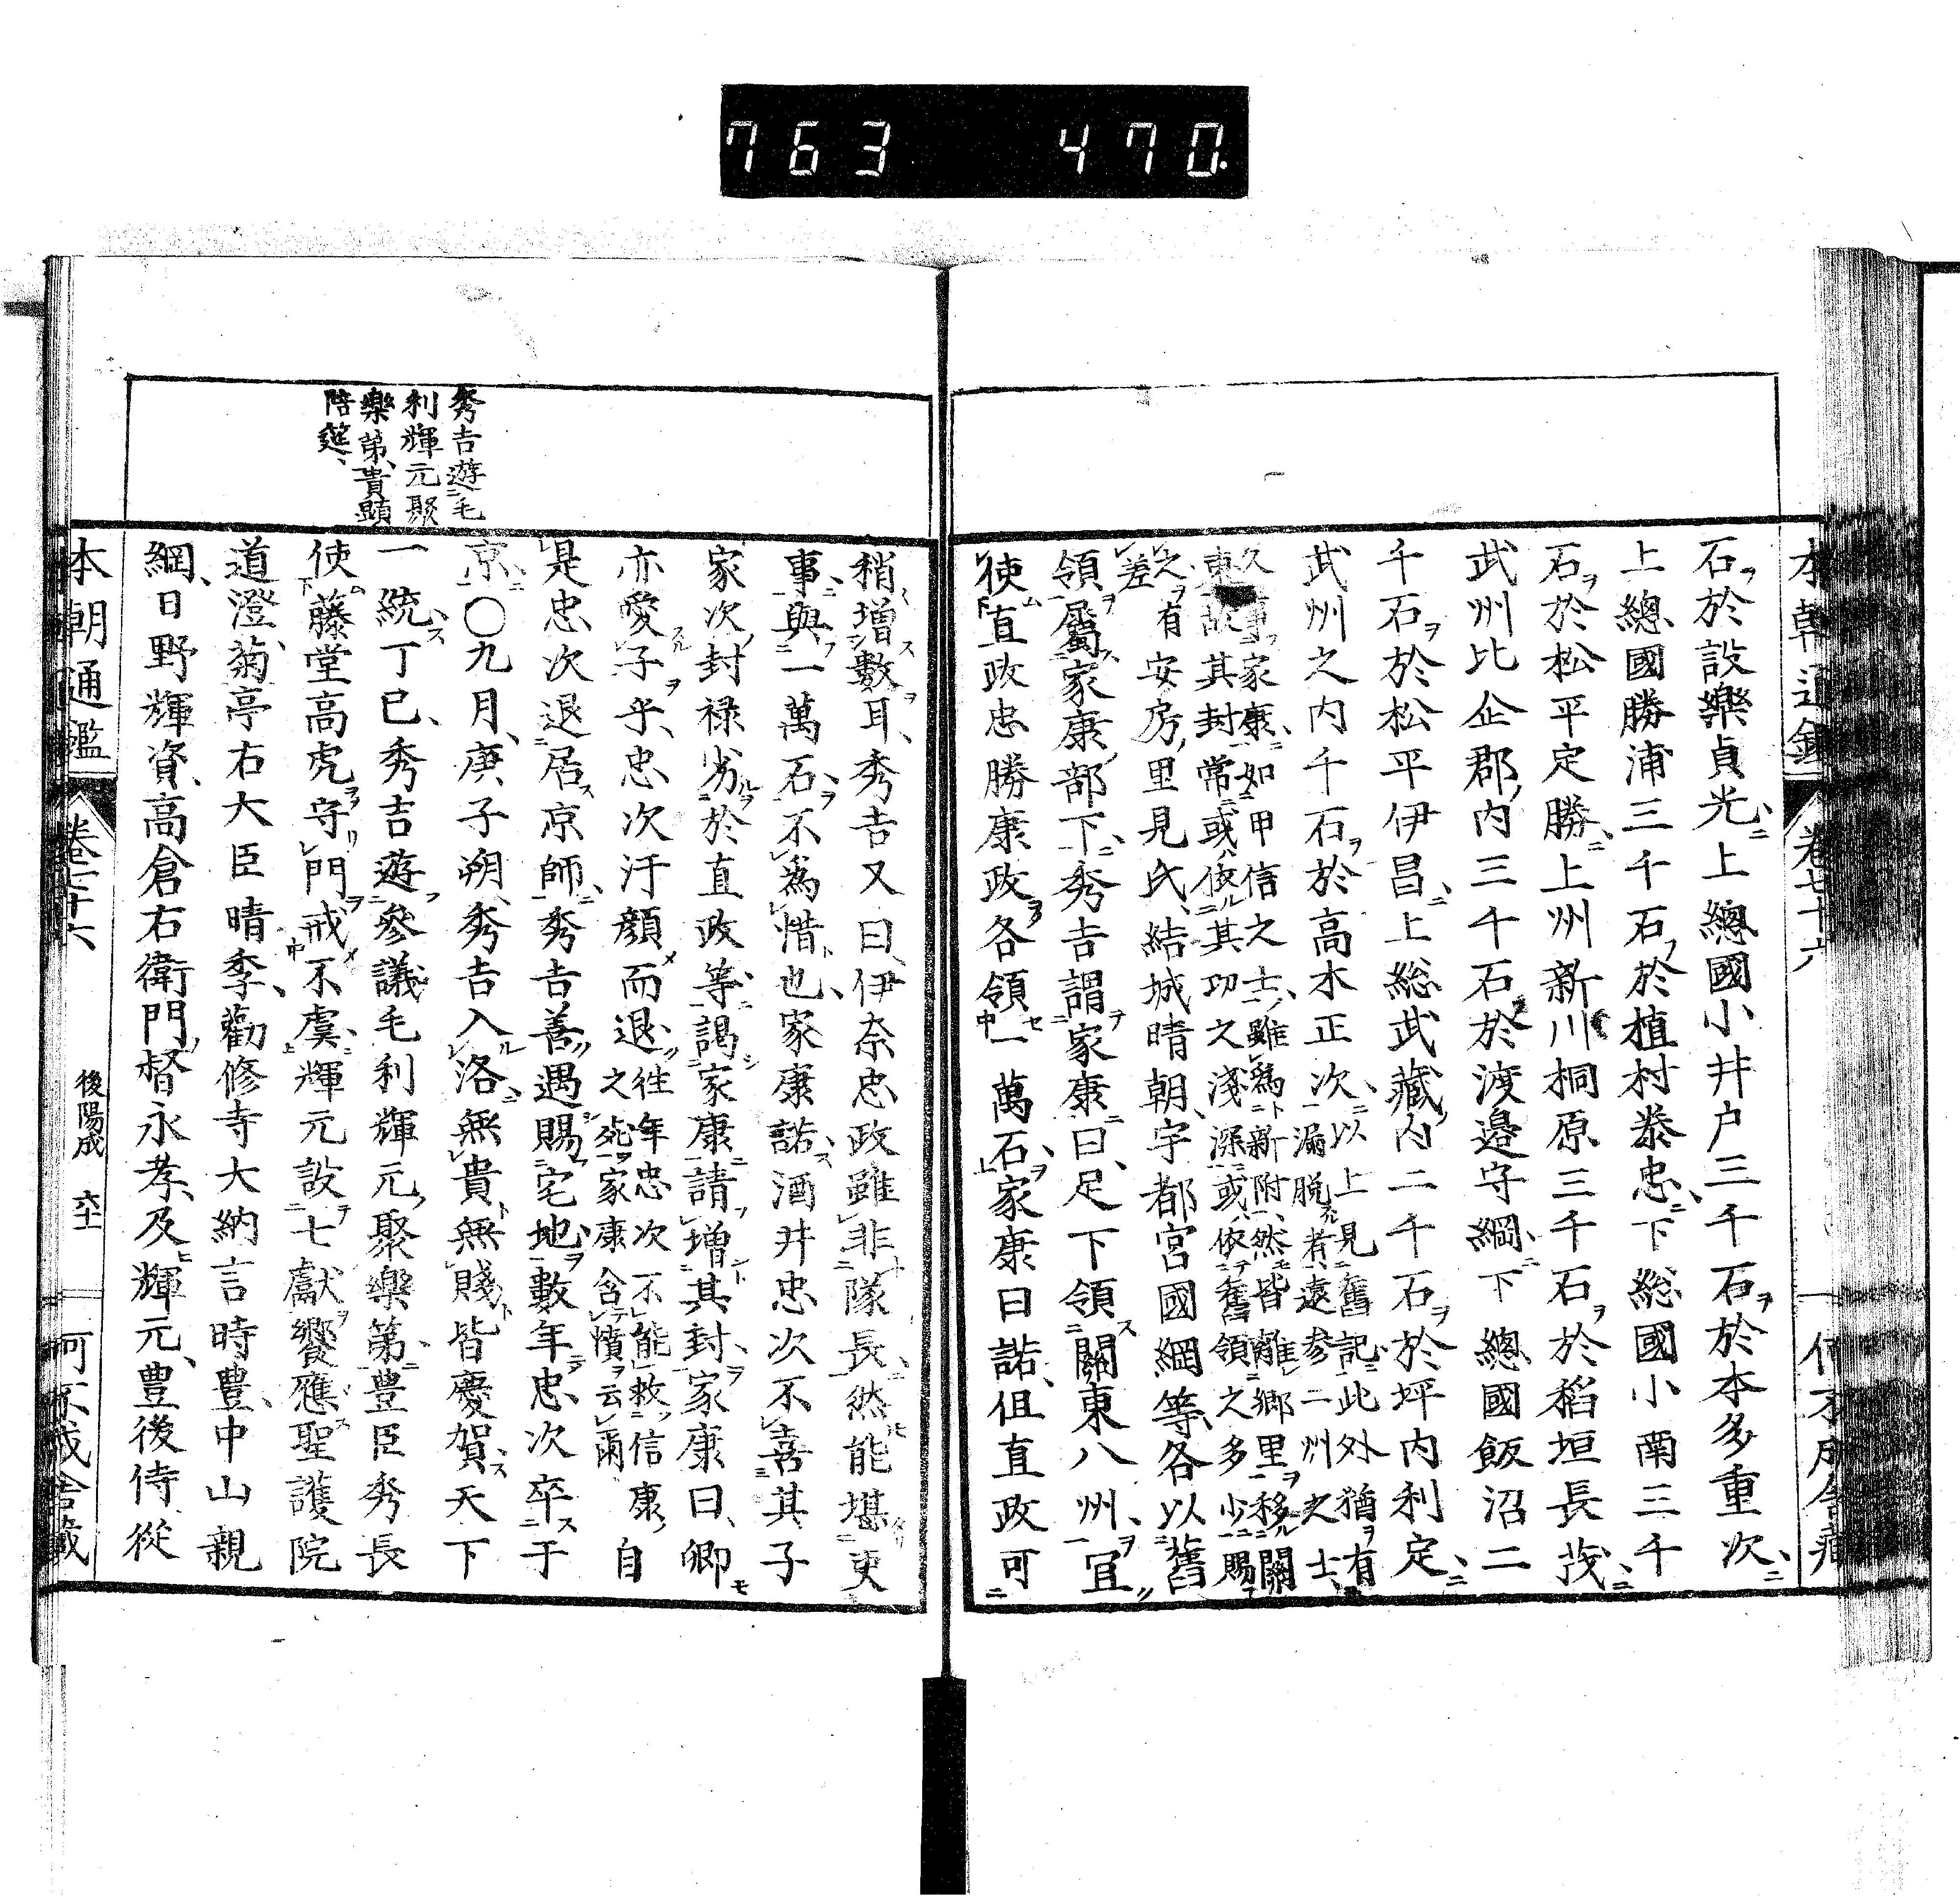 763 470.
石於設樂貞光上總國小井戸三千石於本多重次
上總國勝浦三千石於植村泰忠下総國小南三千
石於松平定勝上州新川桐原三千石於稻垣長茂
武州比企郡内三千石於渡邉守綱下總國飯沼二
千石於松平伊昌上総武藏内二千石於坪内利定
武州之内千石於高木正次
以上見舊記此外猶有
漏脱者遠参二州之士
久事家康如甲信之士雖爲新附然皆離郷里移關
東故其封常或依其功之淺深或依舊領之多少賜
之有
差
安房里見氏結城晴朝宇都宮國綱等各以舊
領屬家康部下秀吉謂家康曰足下領關東八州宜
使直政忠勝康政各領一萬石家康曰諾但直政可
稍增數耳秀吉又曰伊奈忠政雖非隊長然能堪吏
事與一萬石不爲惜也家康諾酒井忠次不喜其子
家次封禄劣於直政等謁家康請増其封家康曰卿
亦愛子乎忠次汗顔而退
往年忠次不能救信康
之死家康含憤云爾
自
是忠次退居京師秀吉善遇賜宅地數年忠次卒于
京〇九月庚子朔秀吉入洛無貴無賤皆慶賀天下
一統丁巳秀吉遊參議毛利輝元聚樂第豊臣秀長
使藤堂高虎守門戒不虞輝元設七獻饗應聖護院
道澄菊亭右大臣晴季勸修寺大納言時豊中山親
綱日野輝資高倉右衛門督永孝及輝元豊後侍從
秀吉遊毛
利輝元聚
樂第貴顯
陪筵
本朝通鑑
卷七十六
後陽成 六十一